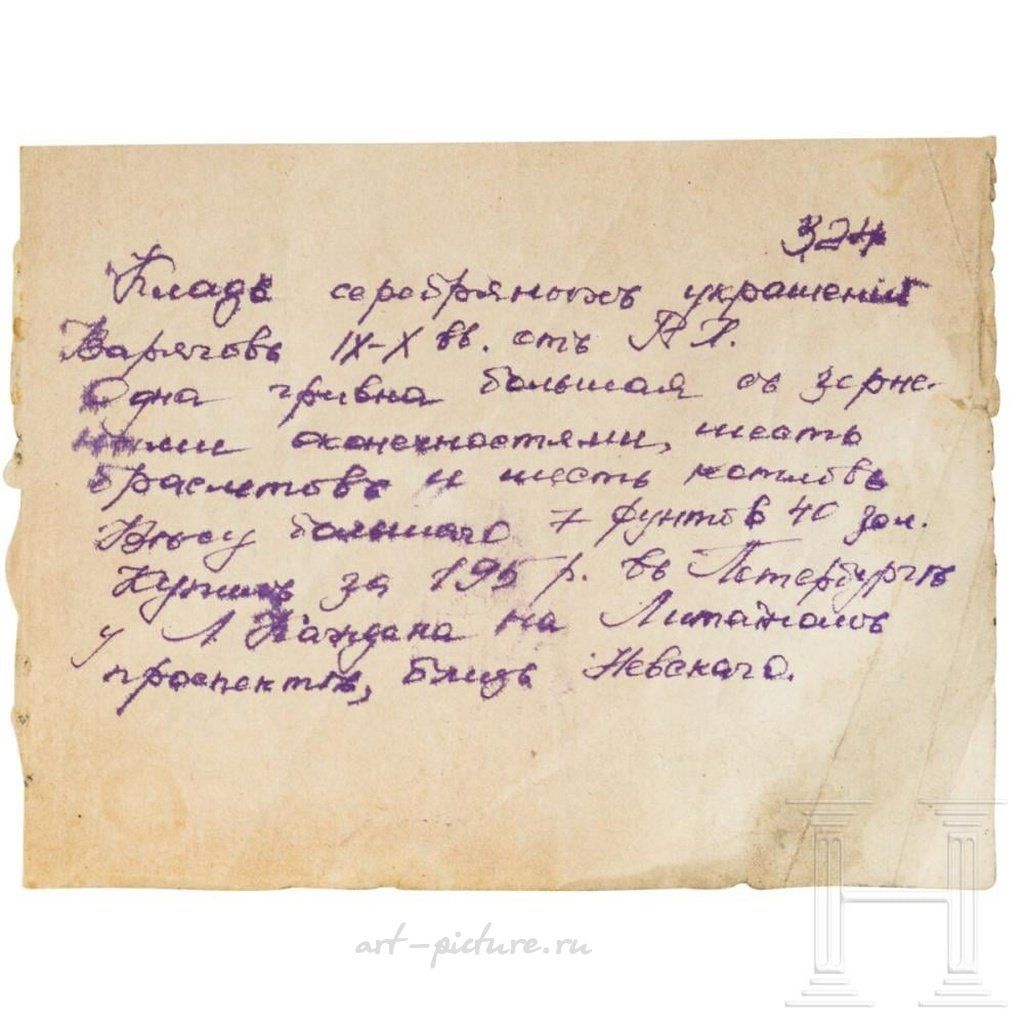 324
Кладъ серебряныхъ украшений
Варяговъ IX-X вв. отъ Р. Х.
Одна гривна большая съ зерне-
ными оконечностями, шесть
браслетовъ и шесть
Вѣсу большаго 7 фунтовъ 40 зол.
Куплъ за 195 р. въ Петербургѣ
у Л. Каждана на
проспектѣ, близъ Невскаго.
art-picture.ru